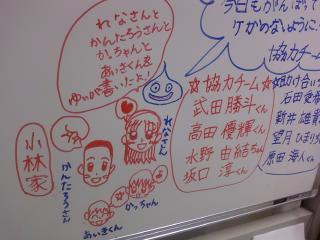 れなさんと
かんたろうさんと
かっちゃんと
あいきくん&
ゆいが書いたよ!
今日もがんばって
ケガのないように
協力チーム
☆協力チーム☆
武田勝斗くん
高田優輝くん
水野由結ちゃん
坂口淳くん
☆助け合い
石田愛
新井雄貴
望月ひまり
原田海人くん
小林家
かんたろうさん
れなさん
かっちゃん
あいきくん